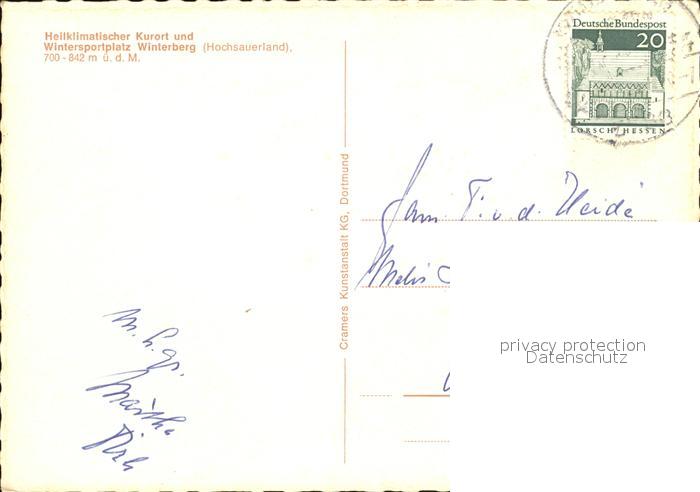 Heilklimatischer Kurort und
Wintersportplatz Winterberg (Hochsauerland),
700 - 842 m ü. d. M.
Deutsche Bundespost
20
LORSCH HESSEN
Cramers Kunstanstalt KG, Dortmund
Fam. F. v. d. Heide
m. h. gr.
privacy protection
Datenschutz